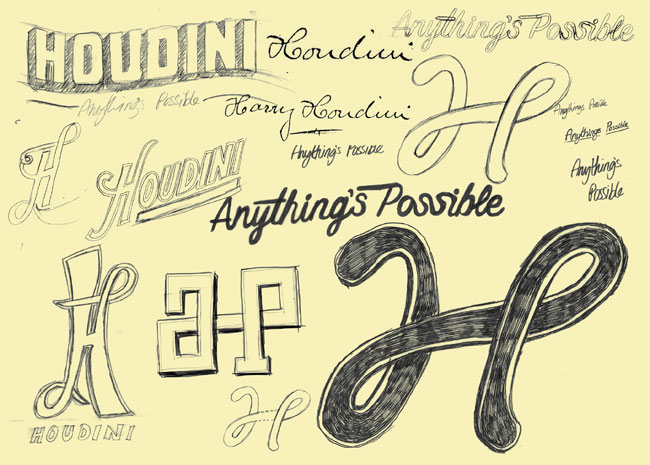 HOUDINI
Houdini
Anything's Possible
Anything's Possible
Harry Houdini
Anything's Possible
Anything's Possible
Anything's Possible
Anything's
Possible
H
HOUDINI
Anything's Possible
H
H
HOUDINI
a-p
H